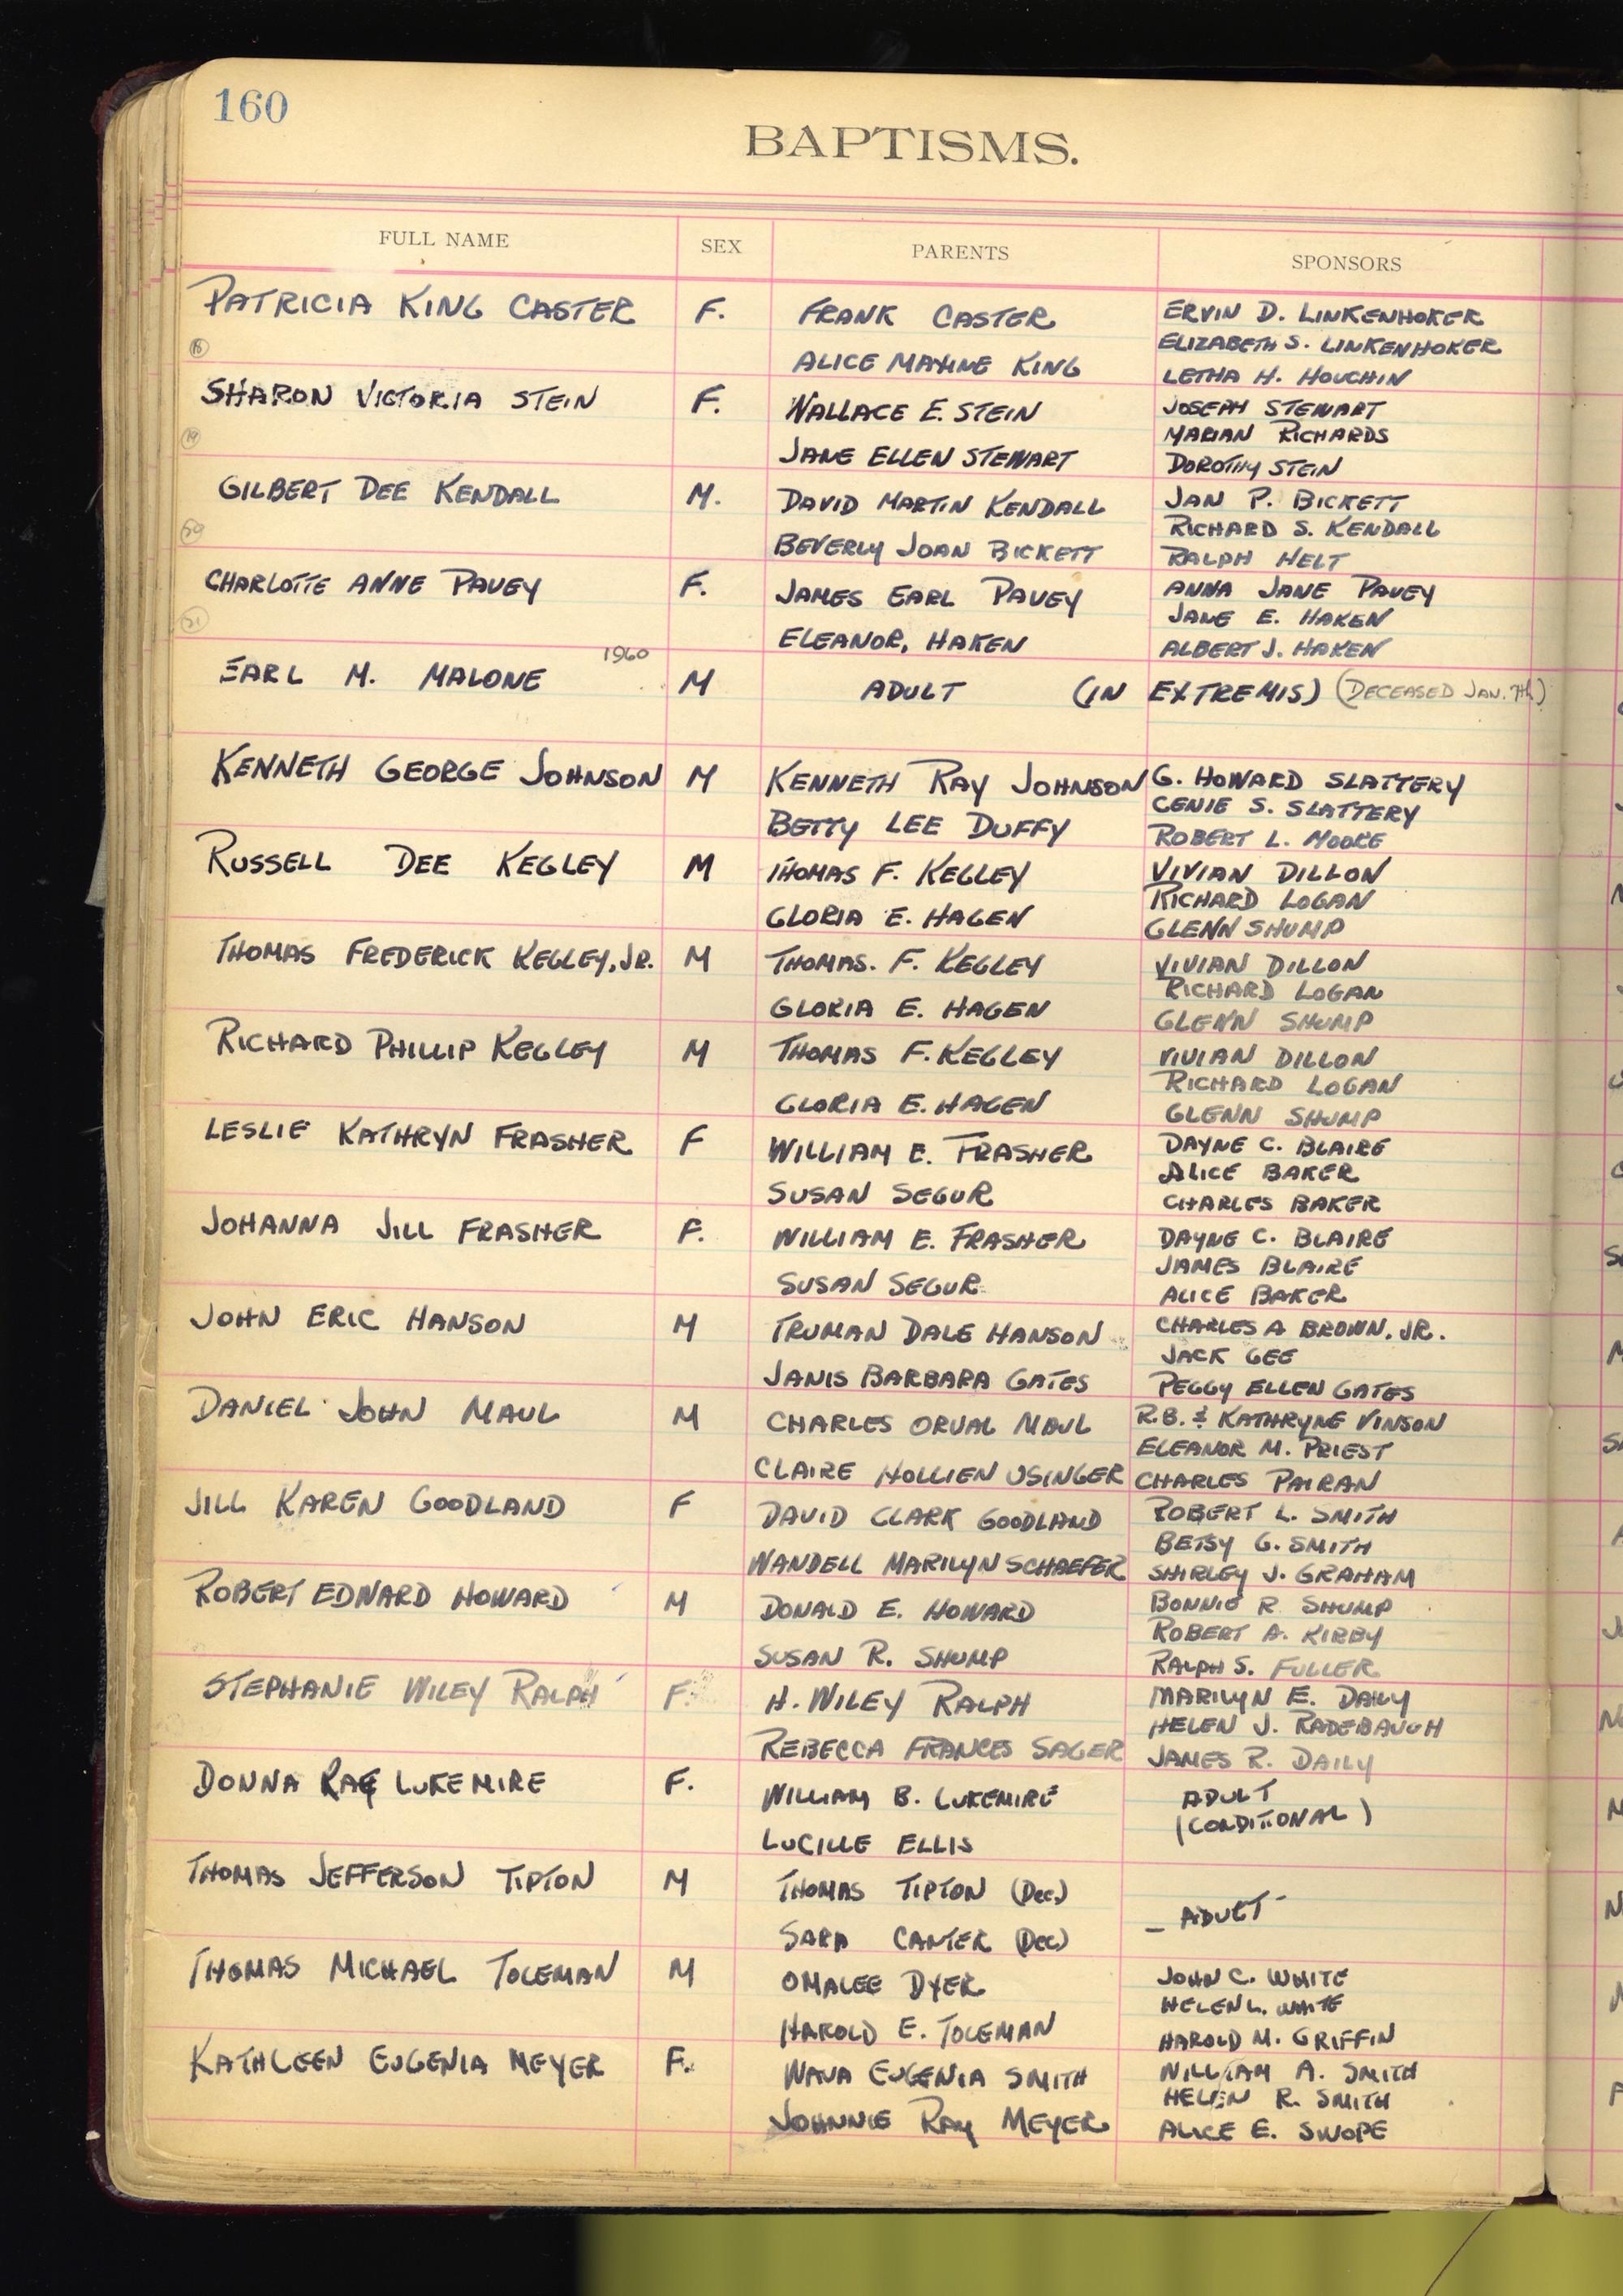 160
BAPTISMS.
FULL NAME SEX PARENTS SPONSORS
PATRICIA KING CASTER F. FRANK CASTER ERVIN D. LINKENHOKER
ELIZABETH S. LINKENHOKER
18 ALICE MAXINE KING LETHA H. HOUCHIN
SHARON VICTORIA STEIN F. WALLACE E. STEIN JOSEPH STEWART
MARIAN RICHARDS
19 JANE ELLEN STEWART DOROTHY STEIN
GILBERT DEE KENDALL M. DAVID MARTIN KENDALL JAN P. BICKETT
RICHARD S. KENDALL
20 BEVERLY JOAN BICKETT RALPH HELT
CHARLOTTE ANNE PAVEY F. JAMES EARL PAVEY ANNA JANE PAVEY
JANE E. HAKEN
21 ELEANOR, HAKEN ALBERT J. HAKEN
1960
EARL M. MALONE M ADULT (IN EXTREMIS) (DECEASED JAN. 7th)
KENNETH GEORGE JOHNSON M KENNETH RAY JOHNSON G. HOWARD SLATTERY
GENIE S. SLATTERY
BETTY LEE DUFFY ROBERT L. MOORE
RUSSELL DEE KEGLEY M THOMAS F. KEGLEY VIVIAN DILLON
RICHARD LOGAN
GLORIA E. HAGEN GLENN SHUMP
THOMAS FREDERICK KEGLEY, JR. M THOMAS. F. KEGLEY VIVIAN DILLON
RICHARD LOGAN
GLORIA E. HAGEN GLENN SHUMP
RICHARD PHILLIP KEGLEY M THOMAS F. KEGLEY VIVIAN DILLON
RICHARD LOGAN
GLORIA E. HAGEN GLENN SHUMP
LESLIE KATHRYN FRASHER F WILLIAM E. FRASHER DAYNE C. BLAIRE
ALICE BAKER
SUSAN SEGUR CHARLES BAKER
JOHANNA JILL FRASHER F. WILLIAM E. FRASHER DAYNE C. BLAIRE
JAMES BLAIRE
SUSAN SEGUR ALICE BAKER
JOHN ERIC HANSON M TRUMAN DALE HANSON CHARLES A BROWN, JR.
JACK GEE
JANIS BARBARA GATES PEGGY ELLEN GATES
DANIEL JOHN MAUL M CHARLES ORVAL MAUL R.B. & KATHRYNE VINSON
ELEANOR M. PRIEST
CLAIRE HOLLIEN USINGER CHARLES PAIRAN
JILL KAREN GOODLAND F DAVID CLARK GOODLAND ROBERT L. SMITH
BETSY G. SMITH
WANDELL MARILYN SCHAEFER SHIRLEY J. GRAHAM
ROBERT EDWARD HOWARD M DONALD E. HOWARD BONNIE R SHUMP
ROBERT A. KIRBY
SUSAN R. SHUMP RALPH S. FULLER
STEPHANIE WILEY RALPH F. H. WILEY RALPH MARILYN E. DAILY
HELEN J. RADEBAUGH
REBECCA FRANCES SAGER JAMES R. DAILY
DONNA RAE LUKEMIRE F. WILLIAM B. LUKEMIRE ADULT
(CONDITIONAL)
LUCILLE ELLIS
THOMAS JEFFERSON TIPTON M THOMAS TIPTON (Dec.)
– ADULT –
SARA CANTER (Dec.)
THOMAS MICHAEL TOLEMAN M OMALEE DYER JOHN C. WHITE
HELEN L. WHITE
HAROLD E. TOLEMAN HAROLD M. GRIFFIN
KATHLEEN EUGENIA MEYER F. WAVA EUGENIA SMITH WILLIAM A. SMITH
HELEN R. SMITH
JOHNNIE RAY MEYER ALICE E. SWOPE